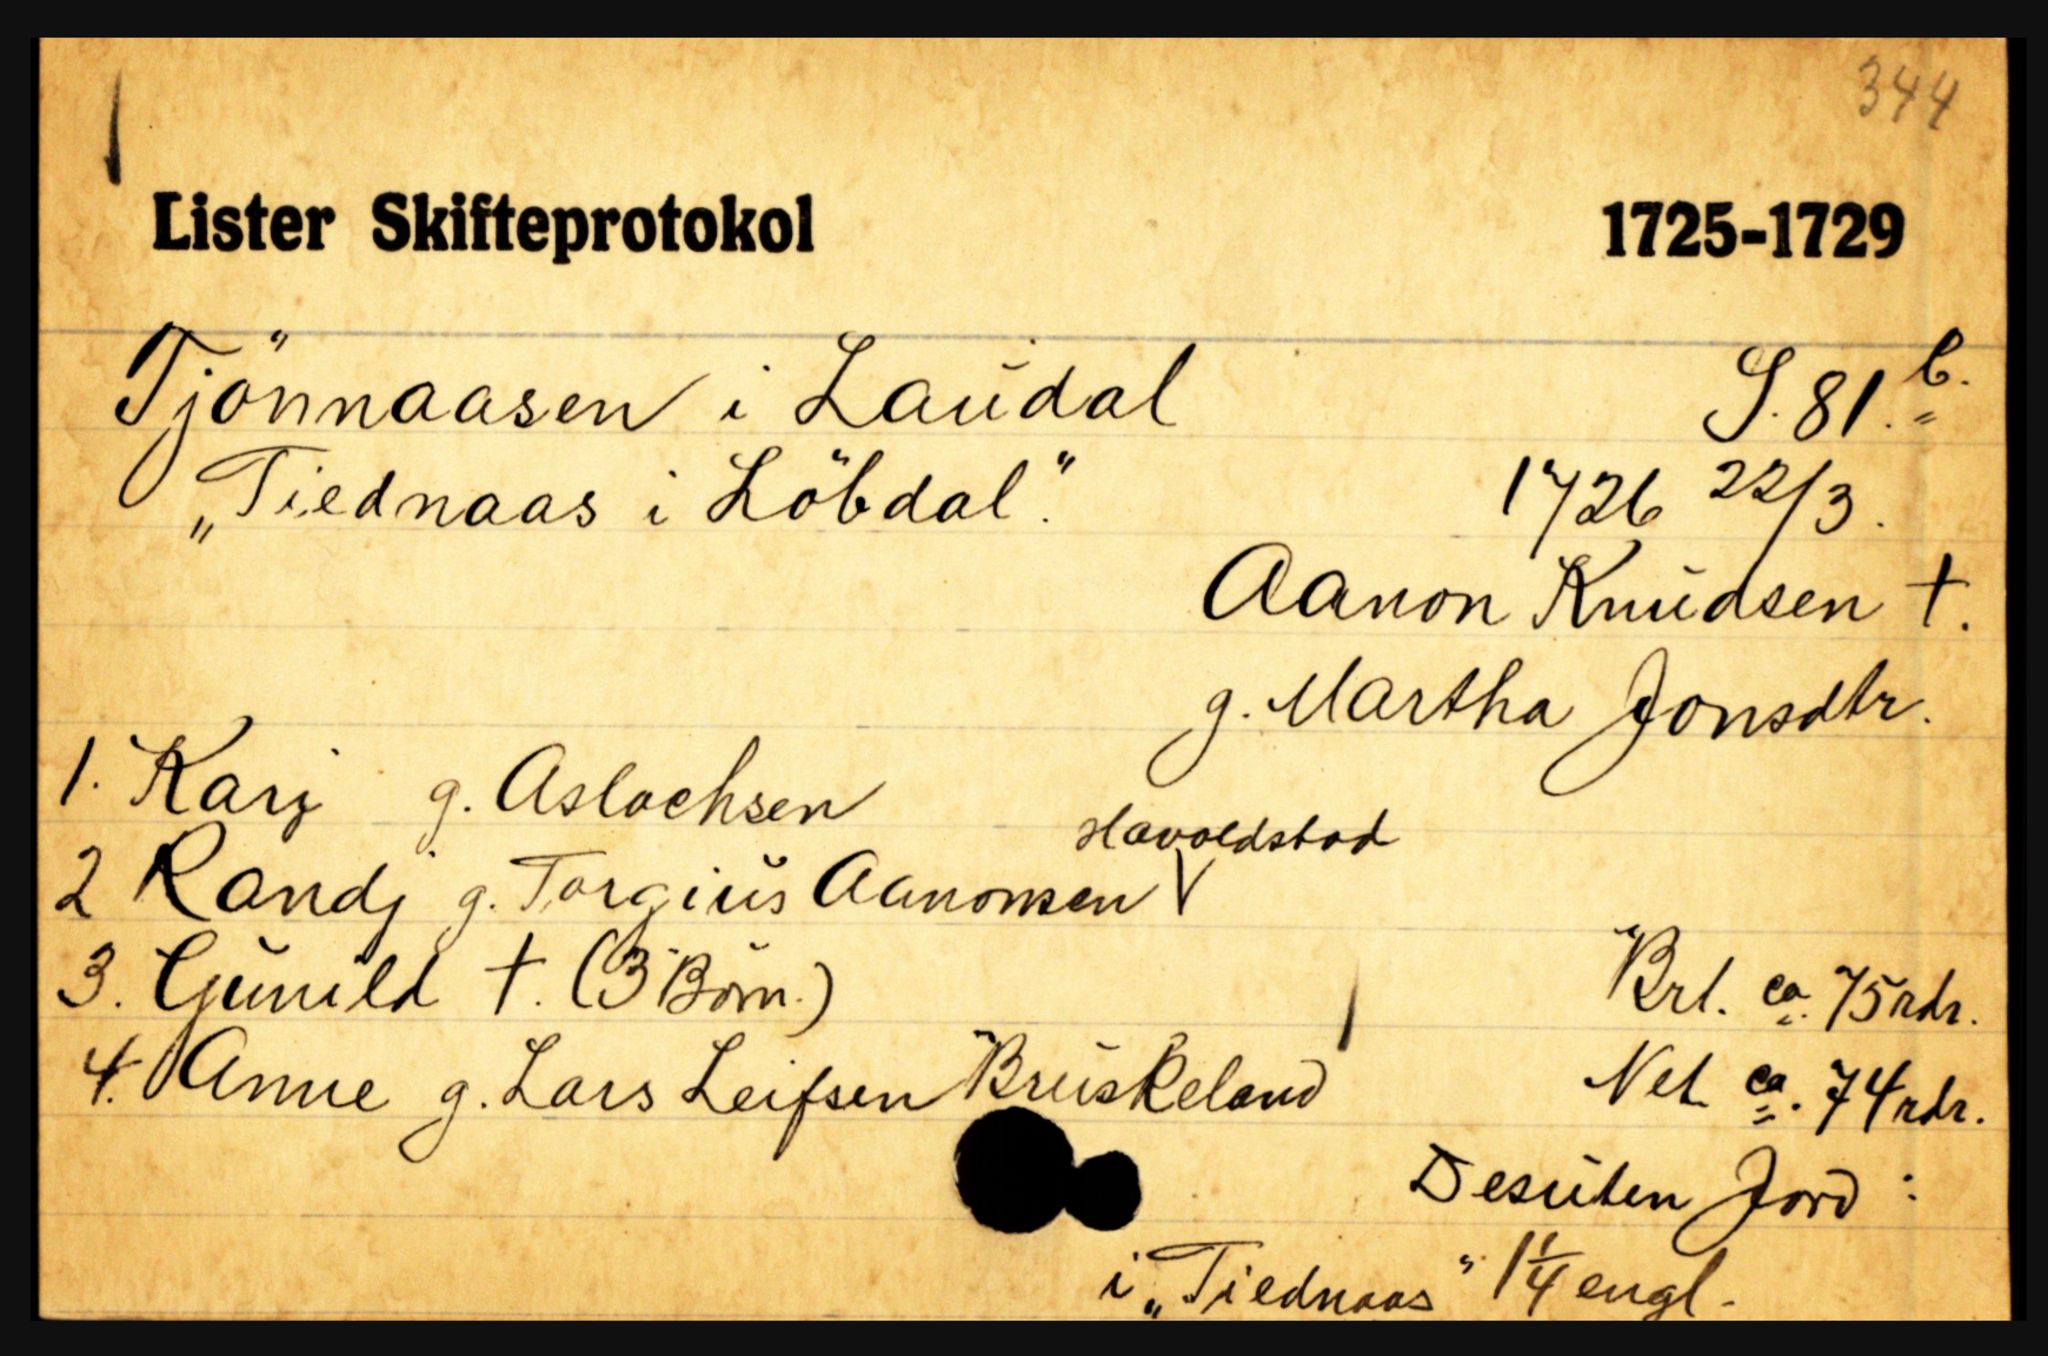 344
Lister Skifteprotokol 1725-1729
Tjönnaasen i Laudal S. 81.b.
„Tiednaas i Löbdal". 1726 22/3.
Aanon Knudsen †.
g. Martha Jonsdtr.
1. Karj g. Aslachsen
Havoldstad
2 Randj g. Torgius Aanonsen V
3. Gunild †. (3 Börn.) Brt. ca. 75 rdr.
4. Anne g. Lars Leifsen Bruskeland Net ca. 74 rdr.
Desuten Jord :
i „Tiednaas" 1 1/4 engl.